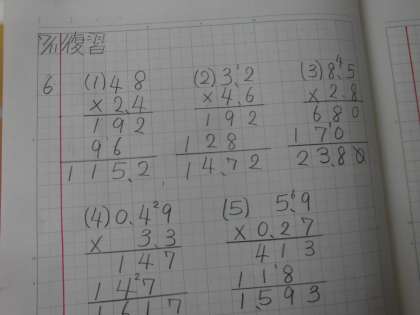 7/11 復習
6 (1) 48 (2) 3.2 (3) 8.5
× 2.4 × 4.6 × 2.8
192 192 680
96 128 170
115.2 14.72 23.80
(4) 0.49 (5) 5.9
× 3.3 × 0.27
147 413
147 118
1617 1.593